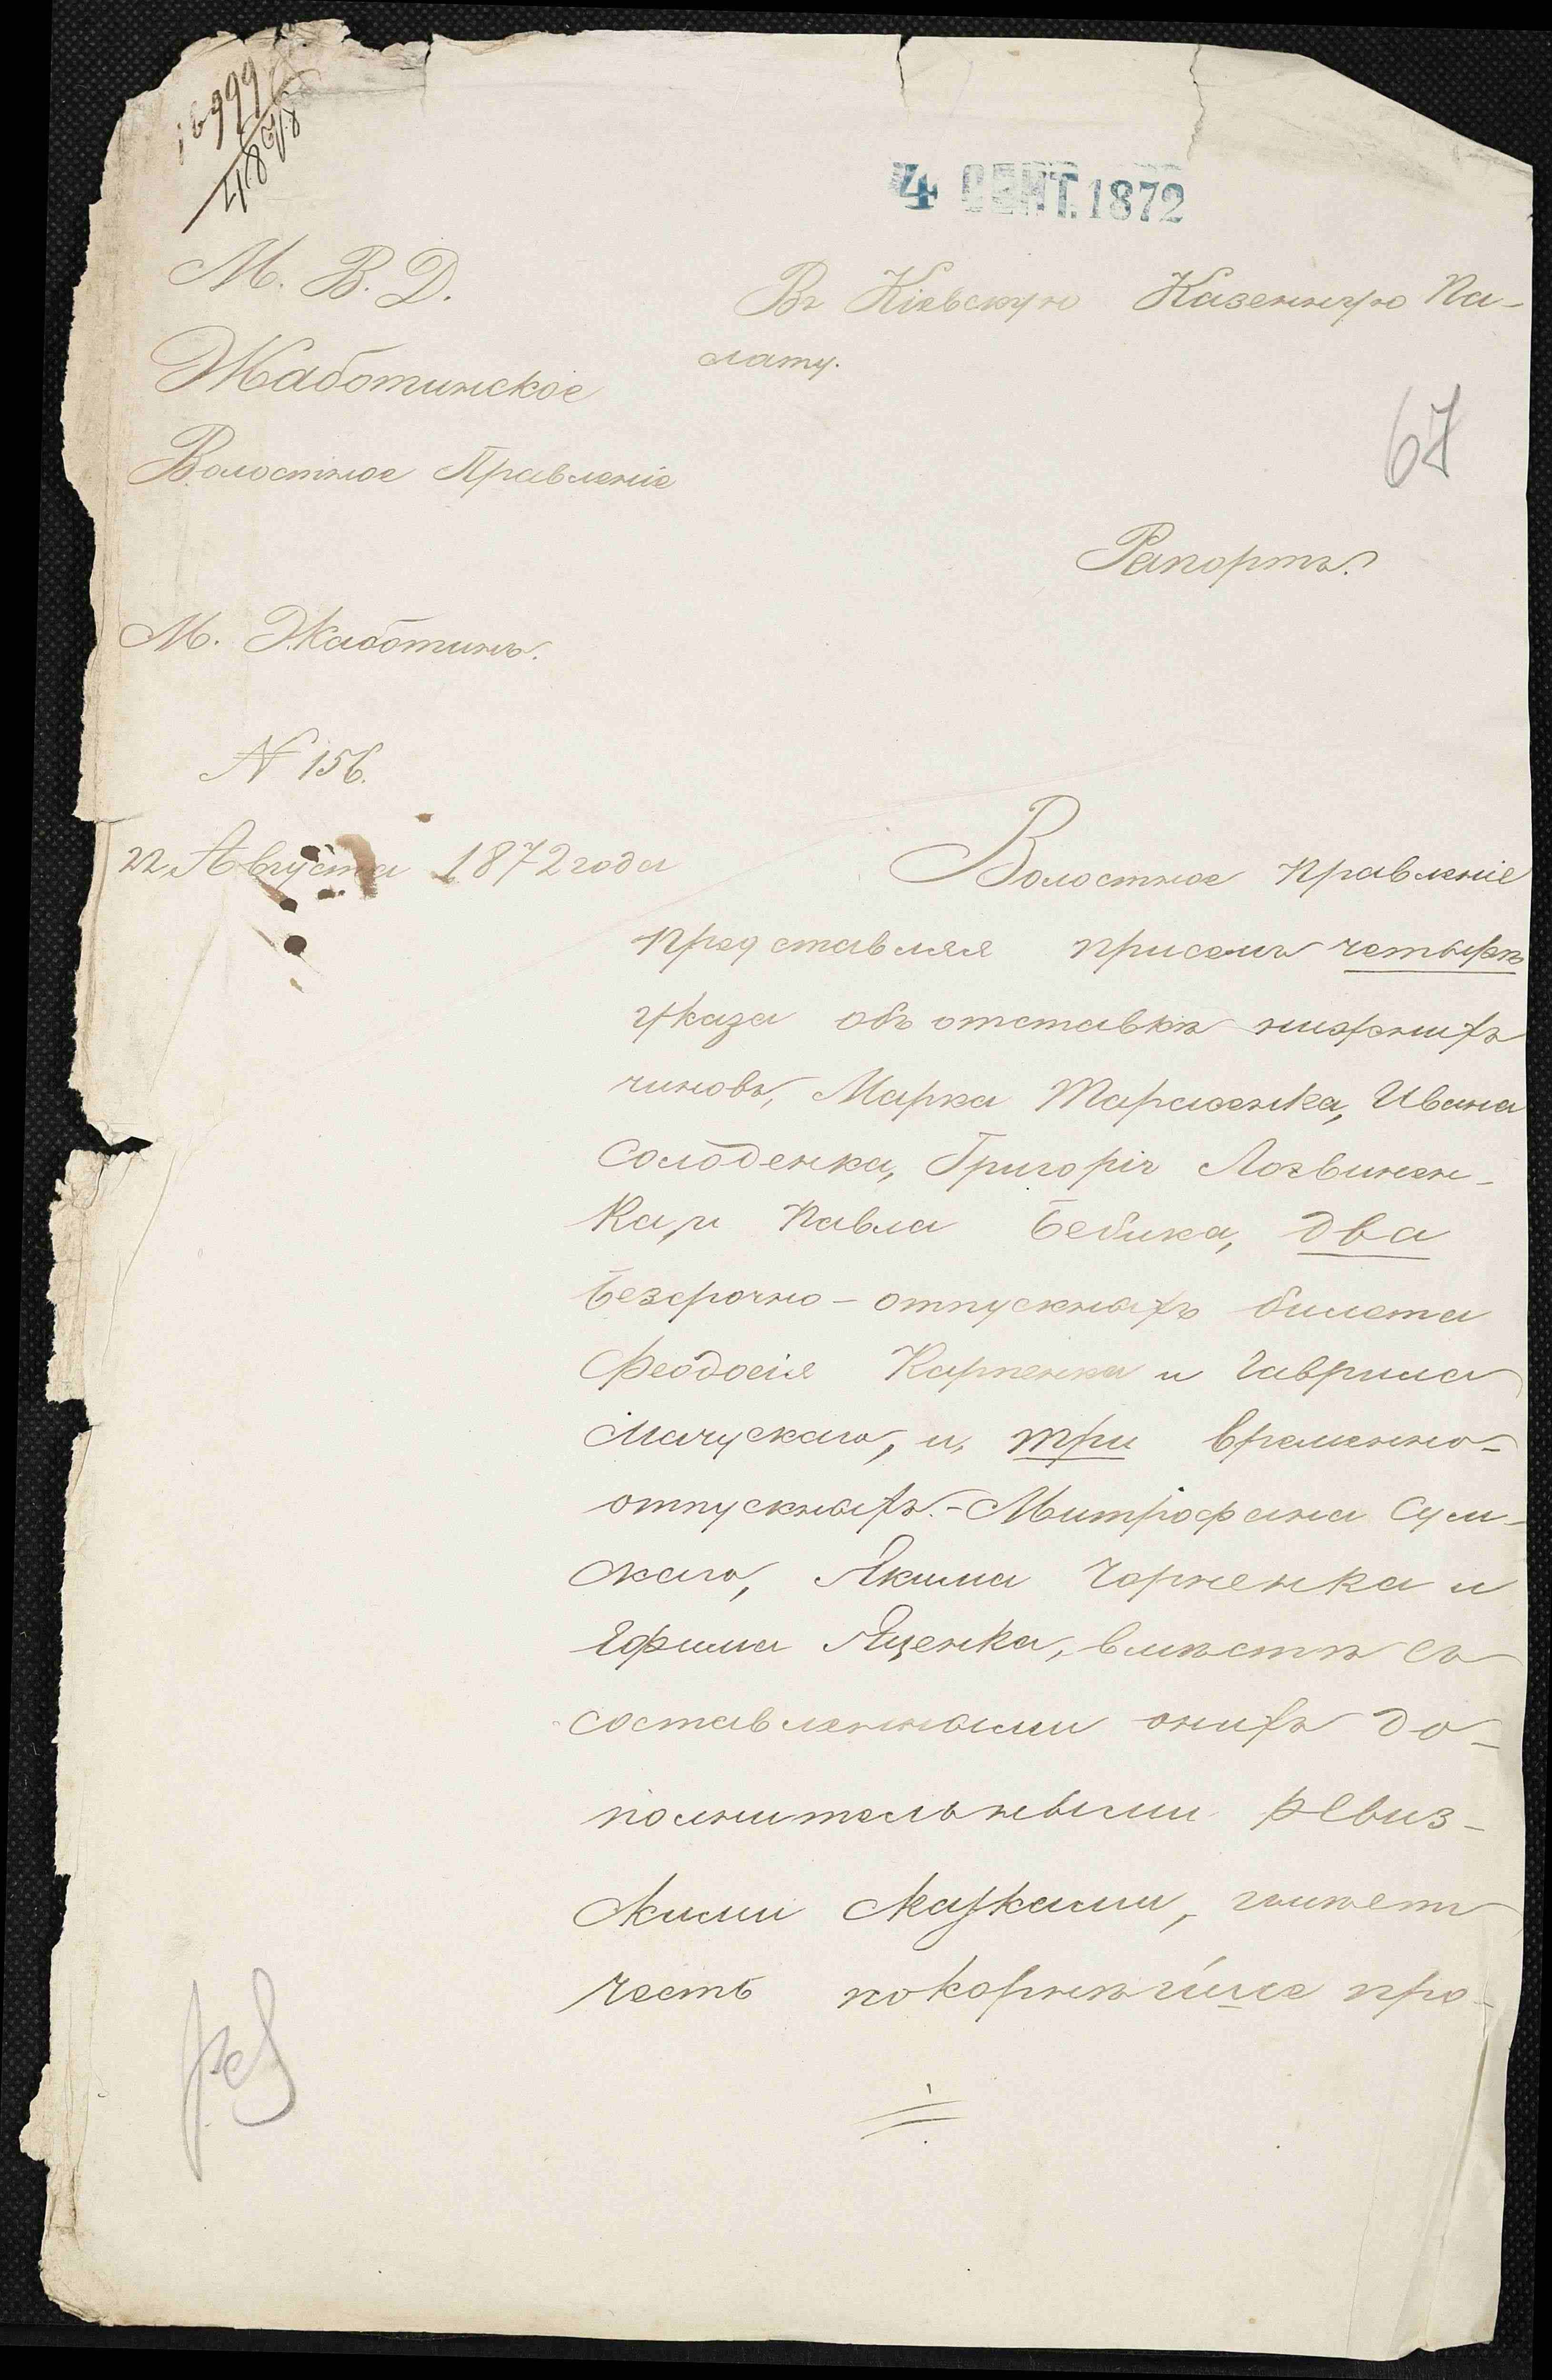 16999
4 СЕНТ. 1872
М. В. Д.
Жаботинское
Волостное Правленіе
М. Жаботинъ.
№ 156.
22 Августа 1872 года
Въ Кіевскую Казенную Па-
лату.
67
Рапортъ.
Волостное правленіе
представляя присемъ четыре
указа объ отставкѣ нижнихъ
чиновъ, Марка Тарасенка, Ивана
Солоденка, Григорія Логвинен-
ка, и Павла Бебика, два
безсрочно-отпускныхъ билета
Феодосія Карпенка и Гаврила
Мачускаго, и, три временно-
отпускныхъ.-Митрофана Сум-
скаго, Якима Чорненка и
Ефима Яценка, вмѣстѣ съ
составленными онихъ до-
полнительными ревиз-
скими сказками, имѣетъ
честь покорнѣйше про-